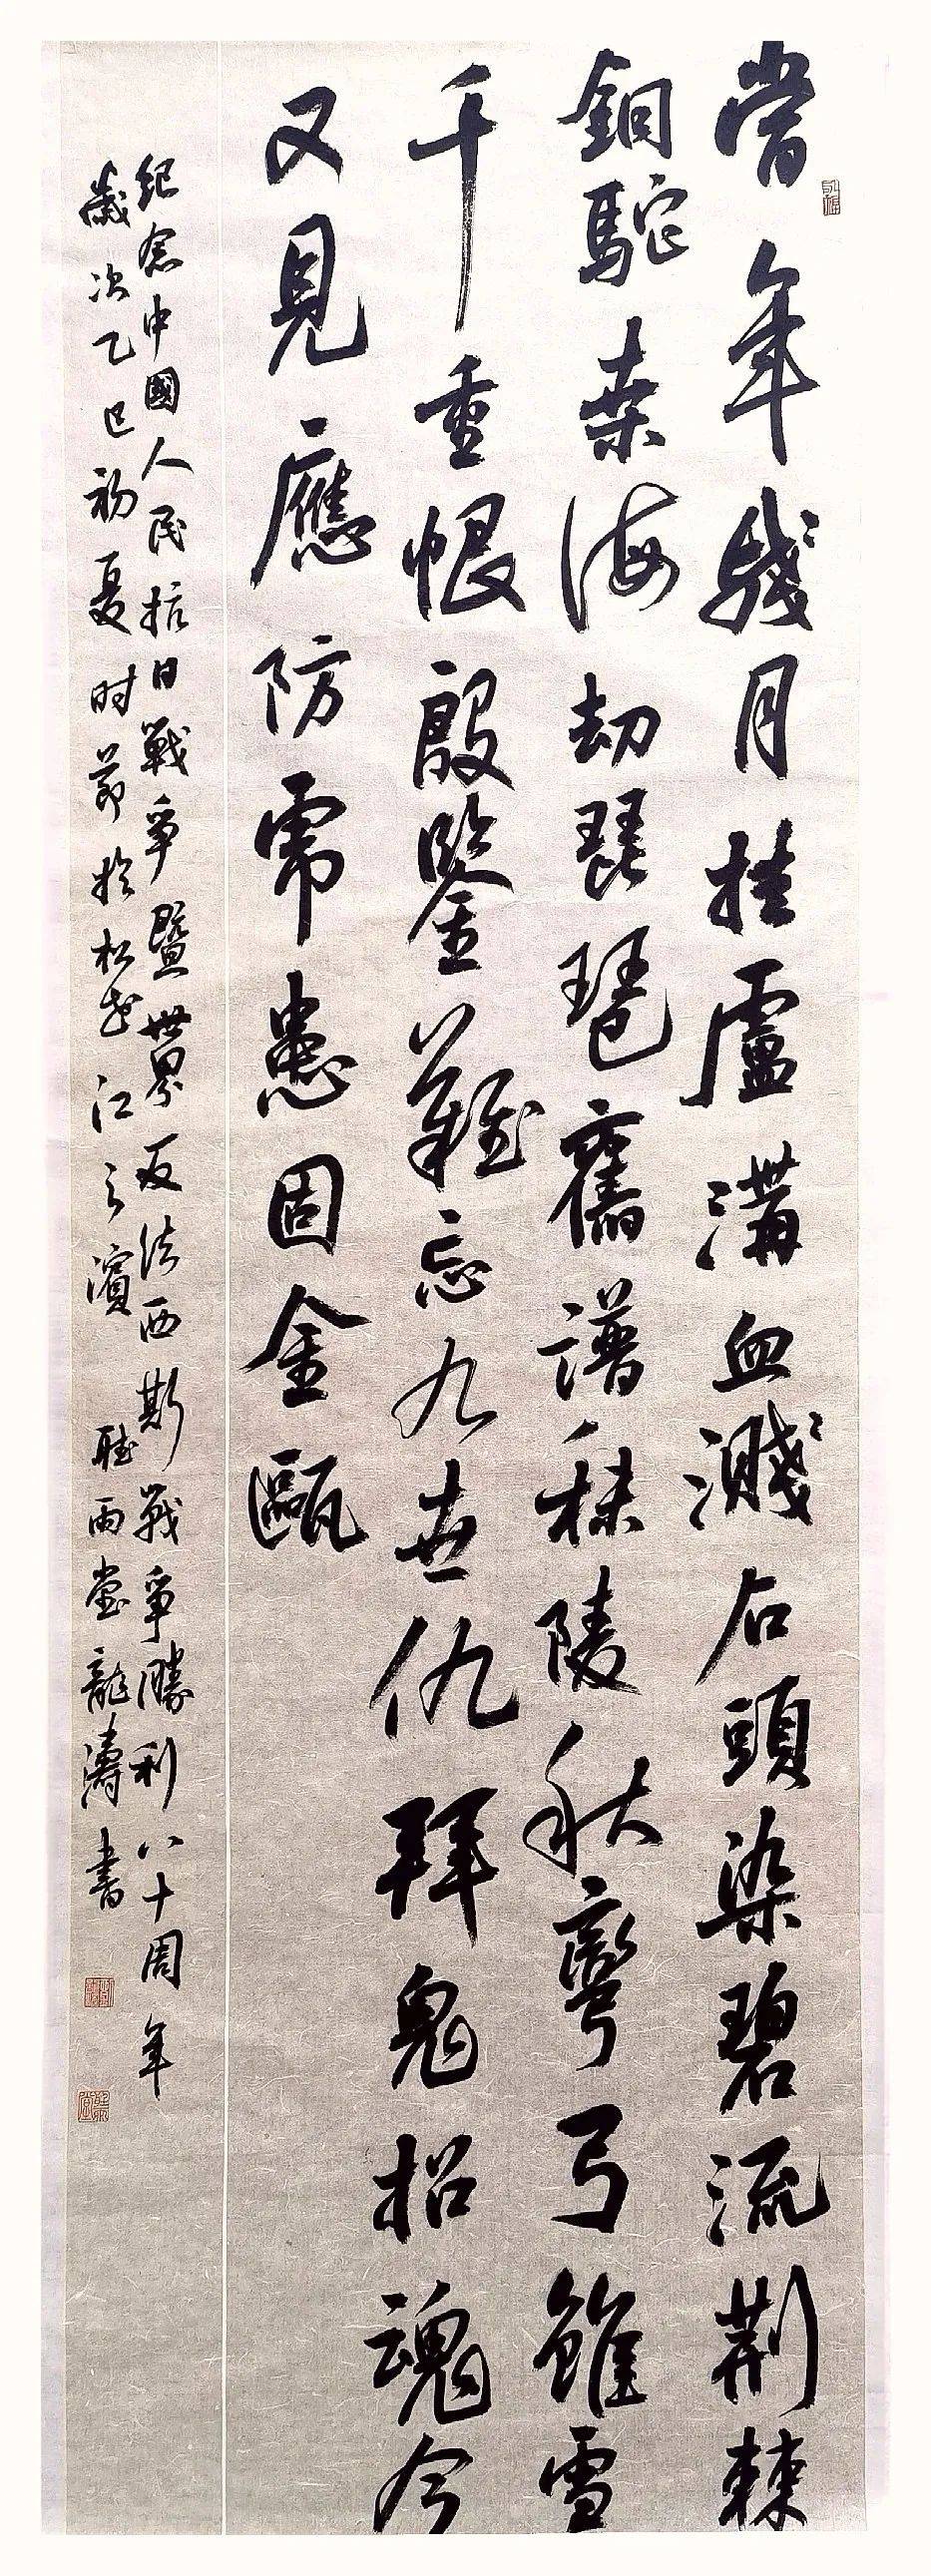 當年殘月挂盧溝血濺石頭染碧流荊棘
銅駝桑海劫琵琶舊譜秣陵秋彎弓雖雪
千重恨殷鑒難忘九世仇拜鬼招魂今
又見應防虎患固金甌
紀念中國人民抗日戰爭暨世界反法西斯戰爭勝利八十周年
歲次乙巳初夏时節於松花江之濱 聽雨堂龍濤書